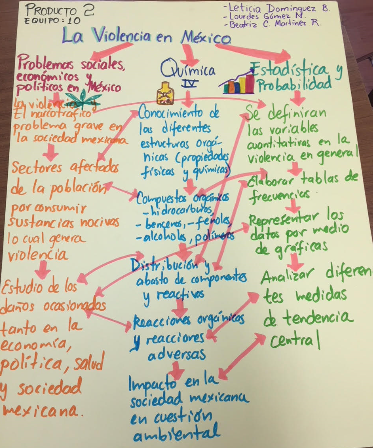 PRODUCTO 2
EQUIPO: 10
- Leticia Domínguez B.
- Lourdes Gómez N.
- Beatriz C Martínez R.
La Violencia en México
Problemas sociales,
económicos y
políticos en México
la violencia
El narcotráfico
problema grave en
la sociedad mexicana
Sectores afectados
de la población
por consumir
sustancias nocivas
lo cual genera
violencia
Estudio de los
daños ocasionados
tanto en la
economía,
política, salud
y sociedad
mexicana.
Química
IV
Conocimiento de
las diferentes
estructuras orgá-
nicas (propiedades
físicas y químicas)
Compuestos orgánicos
- hidrocarburos,
- bencenos, - fenoles,
- alcoholes, polímeros
Distribución y
abasto de componentes
y reactivos
Reacciones orgánicas
y reacciones
adversas
Impacto en la
sociedad mexicana
en cuestión
ambiental
Estadística y
Probabilidad
Se definiran
las variables
cuantitativas en la
violencia en general
Elaborar tablas de
frecuencias.
Representar los
datos por medio
de gráficas
Analizar diferen
tes medidas
de tendencia
central